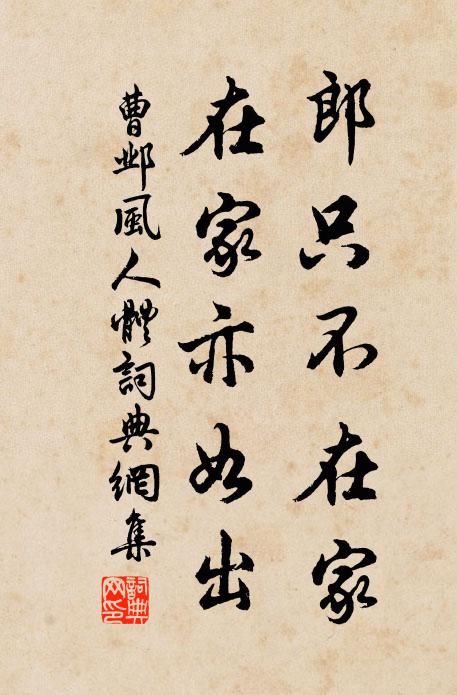 郎只不在家
在家亦如出
曹邺風人體詞典網集
詞典網印